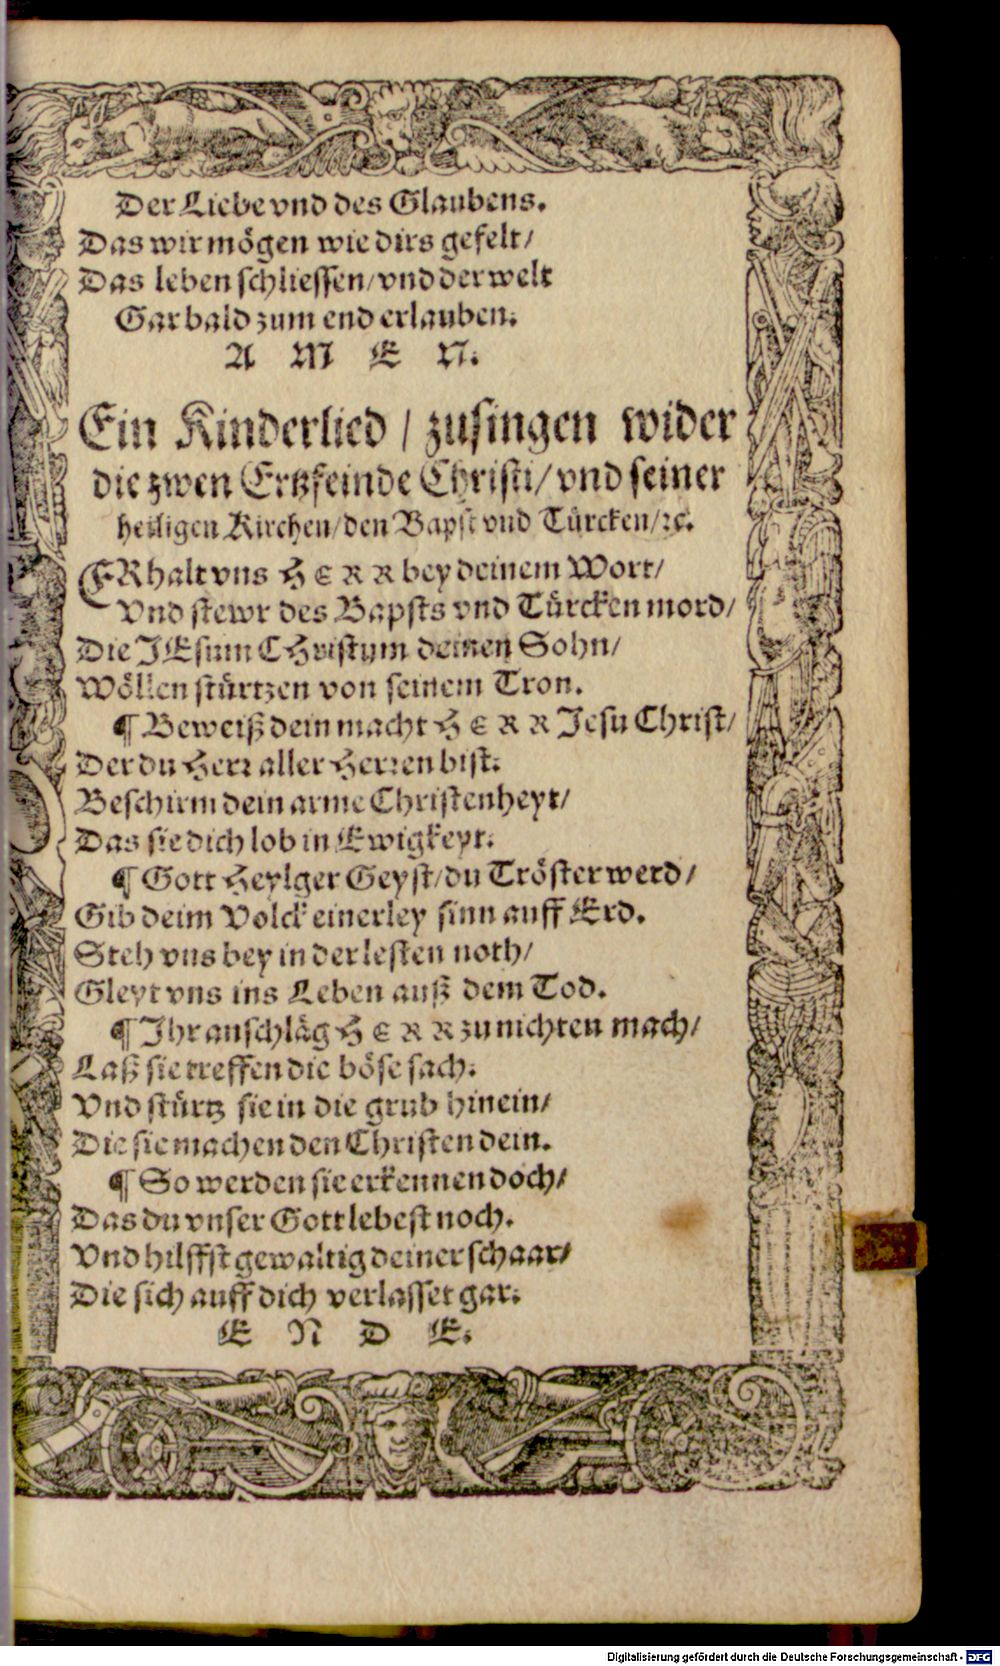 Der Liebe vnd des Glaubens.
Das wir mögen wie dirs gefelt/
Das leben schliessen/vnd der welt
Gar bald zum end erlauben.
A M E N.
Ein Kinderlied / zusingen wider
die zwen Ertzfeinde Christi/ vnd seiner
heiligen Kirchen/den Bapst vnd Türcken/ꝛc.
ERhalt vns HERR bey deinem Wort/
Vnd stewr des Bapsts vnd Türcken mord/
Die JEsum CHristum deinen Sohn/
Wöllen stürtzen von seinem Tron.
¶ Beweiß dein macht HERR Jesu Christ/
Der du Herr aller Herren bist.
Beschirm dein arme Christenheyt/
Das sie dich lob in Ewigkeyt.
¶ Gott Heylger Geyst/du Tröster werd/
Gib deim Volck einerley sinn auff Erd.
Steh vns bey in der lesten noth/
Gleyt vns ins Leben auß dem Tod.
¶ Ihr anschläg HERR zu nichten mach/
Laß sie treffen die böse sach.
Vnd stürtz sie in die grub hinein/
Die sie machen den Christen dein.
¶ So werden sie erkennen doch/
Das du vnser Gott lebest noch.
Vnd hilffst gewaltig deiner schaar/
Die sich auff dich verlasset gar.
E N D E.
Digitalisierung gefördert durch die Deutsche Forschungsgemeinschaft - DFG